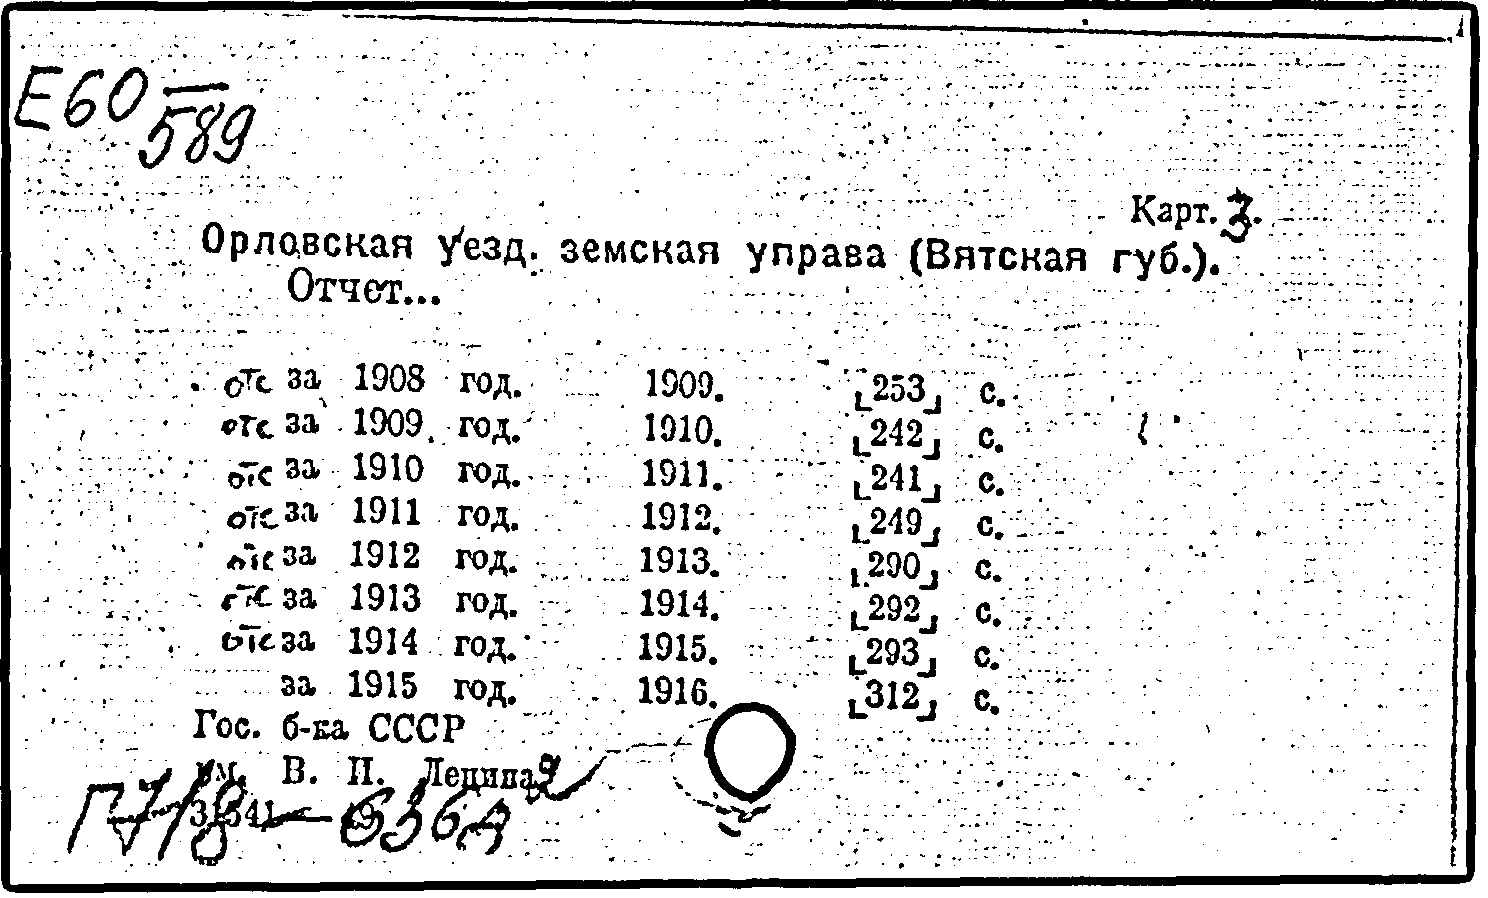 Е60
589
Карт. 3.
Орловская уезд. земская управа (Вятская губ.).
Отчет...
отс за 1908 год. 1909. [253] с.
отс за 1909 год. 1910. [242] с.
отс за 1910 год. 1911. [241] с.
отс за 1911 год. 1912. [249] с.
отс за 1912 год. 1913. [290] с.
отс за 1913 год. 1914. [292] с.
отс за 1914 год. 1915. [293] с.
за 1915 год. 1916. [312] с.
Гос. б-ка СССР
им. В. И. Ленина